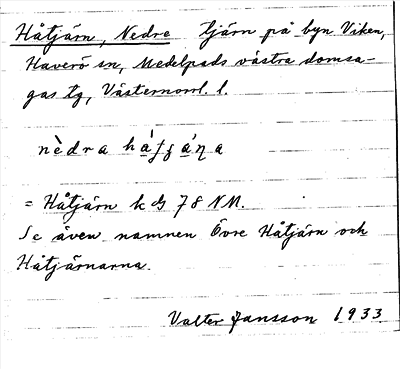 Håtjärn, Nedre tjärn på byn Viken,
Haverö sn, Medelpads västra domsa-
gas tg, Västernorrl. l.
nèdra
= Håtjärn k bl 78 NM.
Se även namnen Övre Håtjärn och
Håtjärnarna.
Valter Jansson 1933.